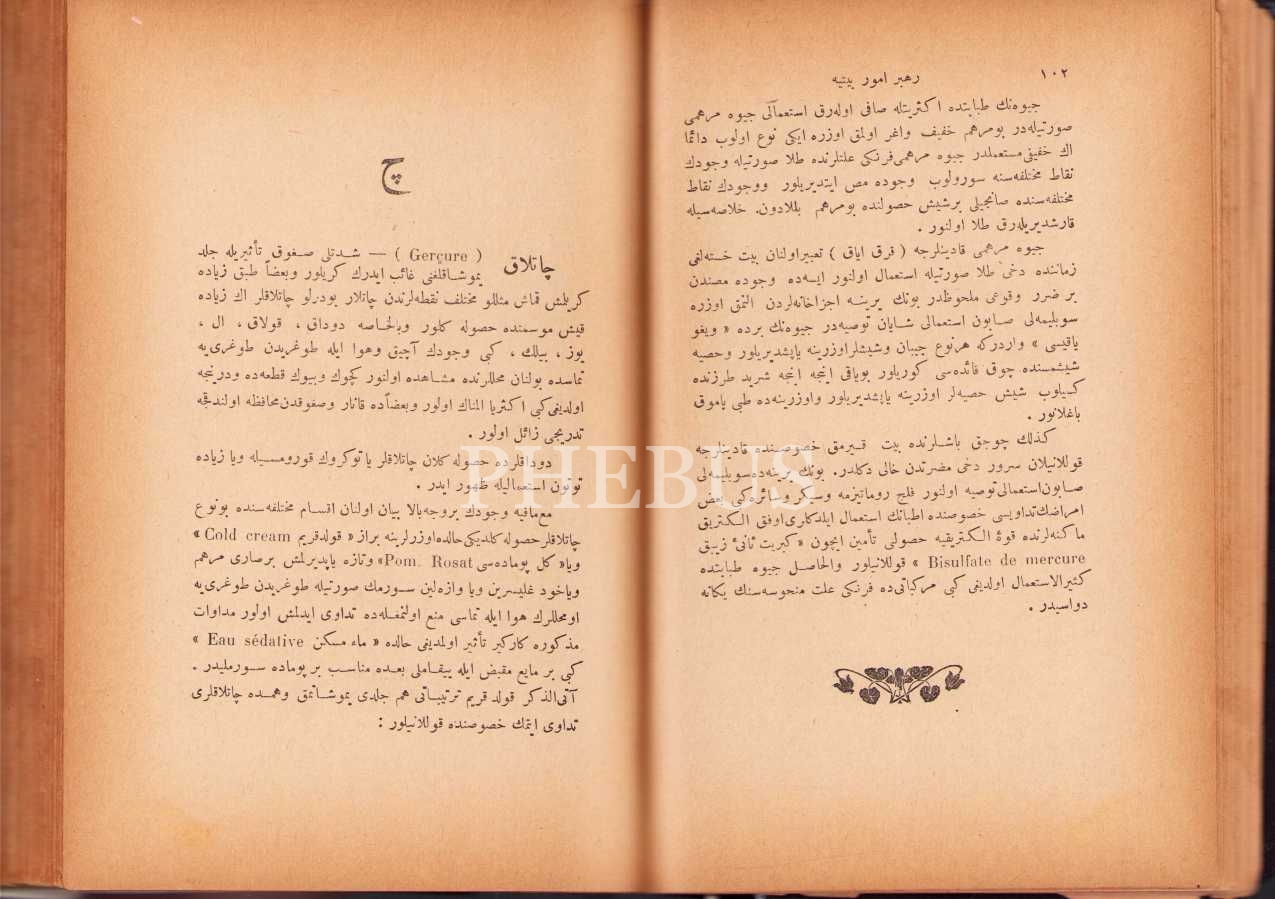 ١٠٢
رهبر امور بیتیه
جیوه‌نك طبابتده اكثریتله صافی اوله‌رق استعمالی جیوه مرهمی
صورتیله‌در بومرهم خفیف واغر اولمق اوزره ایكی نوع اولوب دائما
اك خفیفی مستعملدر جیوه مرهمی فرنكی علتلرنده طلا صورتیله وجودك
نقاط مختلفه‌سنه سورولوب وجوده مص ایتدیریلور ووجودك نقاط
مختلفه‌سنده صانجیلی برشیش حصولنده بومرهم بللادون. خلاصه‌سیله
قارشدیریله‌رق طلا اولنور .
جیوه مرهمی قادینلرجه ( قرق ایاق ) تعبیراولنان بیت خسته‌لغی
زماننده دخی طلا صورتیله استعمال اولنور ایسه‌ده وجوده مصندن
بر ضرر وقوعی ملحوظدر بونك یرینه اجزاخانه‌لردن آلتمق اوزره
سوبلیمه‌لی صابون استعمالی شایان توصیه‌در جیوه‌نك برده « ویغو
یاقیسی » واردركه هرنوع چیبان وشیشلر اوزرینه یاپشدیریلور وحصیه
شیشمسنده چوق فائده‌سی كوریلور بویاقی اینجه اینجه شرید طرزنده
كسیلوب شیش حصیه‌لر اوزرینه یاپشدیریلور واوزرینه‌ده طبی پاموق
باغلانور .
كذلك چوجق باشلرنده بیت قیرمق خصوصنده قادینلرجه
قوللانیلان سرور دخی مضرتدن خالی دكلدر. بونك یرینه‌ده سوبلیمه‌لی
صابون استعمالی توصیه اولنور فلج روماتیزمه وسیكر وسائره‌كبی بعض
امراضك تداویسی خصوصنده اطبانك استعمال ایلدكاری اوفق الكتریق
ماكنه‌لرنده قوۀ الكتریقیه حصولی تأمین ایچون « كبریت ثانئ زیبق
Bisulfate de mercure » قوللانیلور والحاصل جیوه طبابتده
كثیرالاستعمال اولدیغی كبی مركباتی‌ده فرنكی علت منحوسه‌سنك یكانه
دواسیدر .
چ
چاتلاق ( Gerçure ) — شدتلی صغوق تأثیریله جلد
یموشاقلغنی غائب ایدرك كریلور وبعضاً طبق زیاده
كریلمش قماش مثللو مختلف نقطه‌لرندن چاتلار بودرلو چاتلاقلر اك زیاده
قیش موسمنده حصوله كلور وبالخاصه دوداق ، قولاق ، ال ،
یوز ، بیلك ، كبی وجودك آچیق وهوا ایله طوغریدن طوغری‌یه
تماسده بولنان محللرنده مشاهده اولنور كچوك وبیوك قطعه‌ده ودرینجه
اولدیغی كبی اكثریا المناك اولور وبعضاًده قانار وصغوقدن محافظه اولندقجه
تدریجی زائل اولور .
دوداقلرده حصوله كلان چاتلاقلر یا توكروك قورومسیله ویا زیاده
توتون استعمالیله ظهور ایدر .
مع‌مافیه وجودك بروجه‌بالا بیان اولنان اقسام مختلفه‌سنده بونوع
چاتلاقلر حصوله كلدیكی حالده اوزرلرینه براز « قولدقریم Cold cream »
ویا « كل پوماده‌سی Pom. Rosat» وتازه یاپدیرلمش برصاری مرهم
ویاخود غلیسرین ویا وازه‌لین سورمك صورتیله طوغریدن طوغری‌یه
اومحللرك هوا ایله تماسی منع اولنمغله‌ده تداوی ایدلمش اولور مداوات
مذكوره كاركیر تأثیر اولمدیغی حالده « ماء مسكن Eau sédative »
كبی بر مایع مقبض ایله ییقاملی بعده مناسب بر پوماده سورملیدر .
آتی‌الذكر قولد قریم ترتیباتی هم جلدی یموشاتمق وهمده چاتلاقلری
تداوی ایتمك خصوصنده قوللانیلور :
PHEBUS